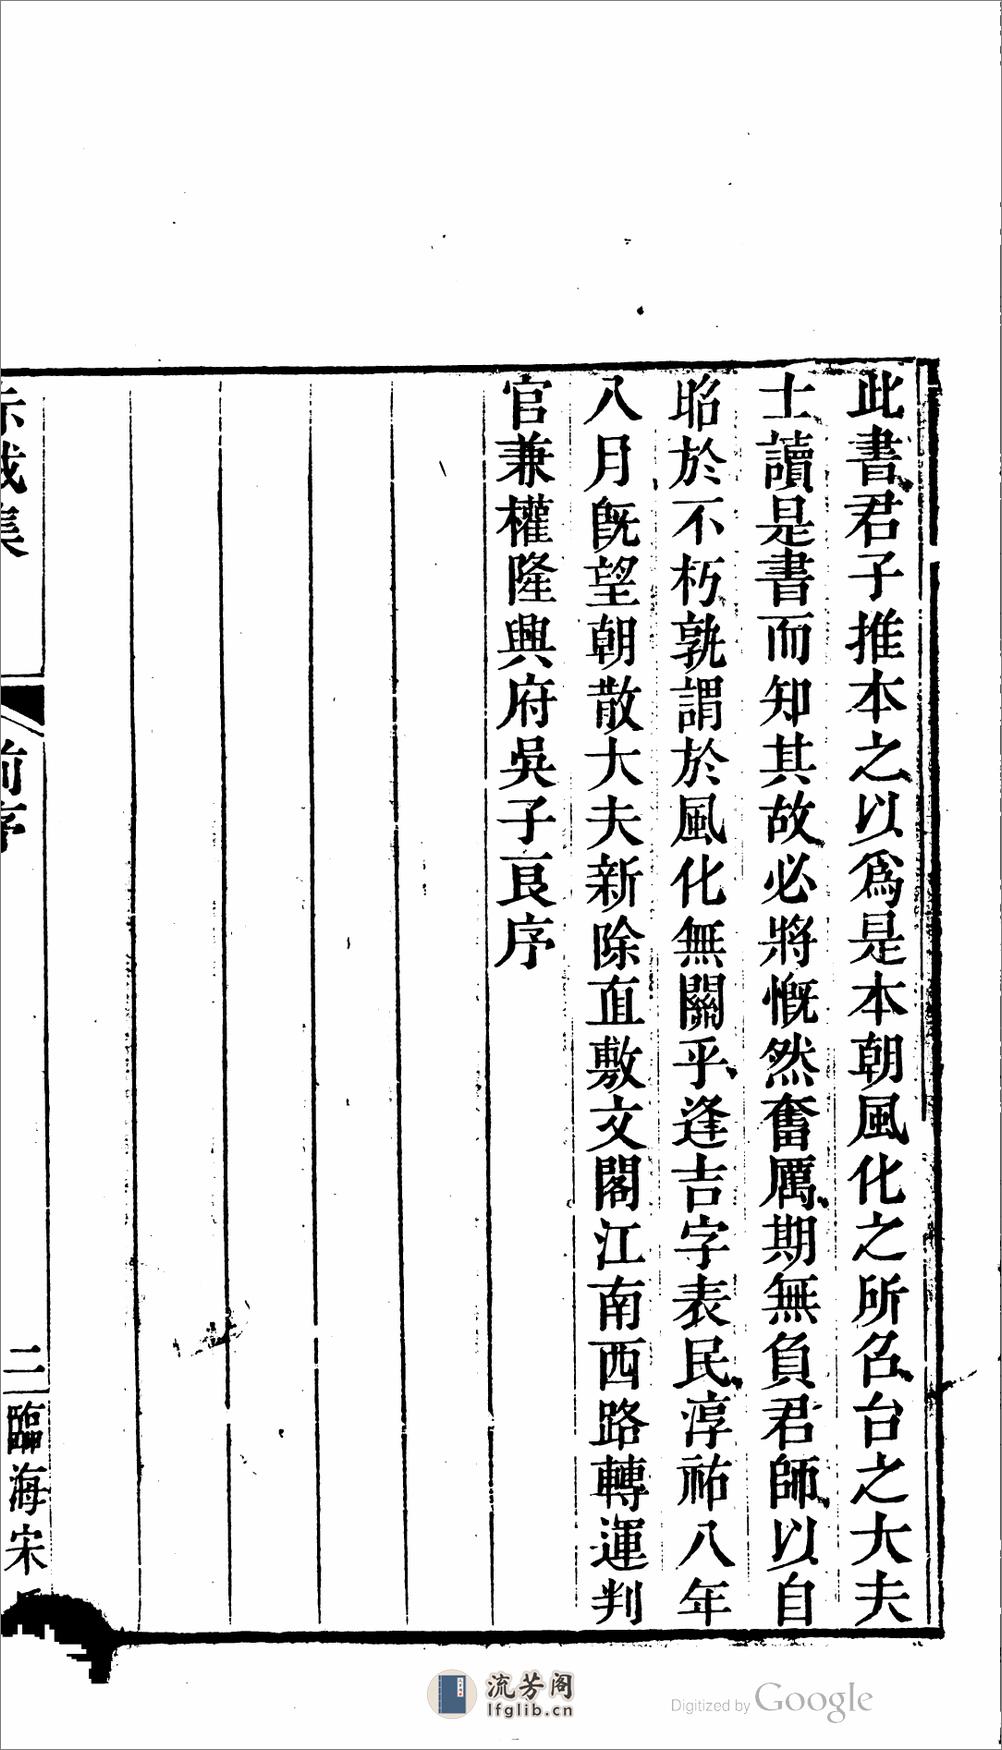 此書君子推本之以爲是本朝風化之所名台之大夫
士讀是書而知其故必將慨然奮厲期無負君師以自
昭於不朽孰謂於風化無關乎逢吉字表民淳祐八年
八月旣望朝散大夫新除直敷文閣江南西路轉運判
官兼權隆興府吳子良序
赤城集
前序
二
臨海宋
流芳阁
lfglib.cn
Digitized by Google